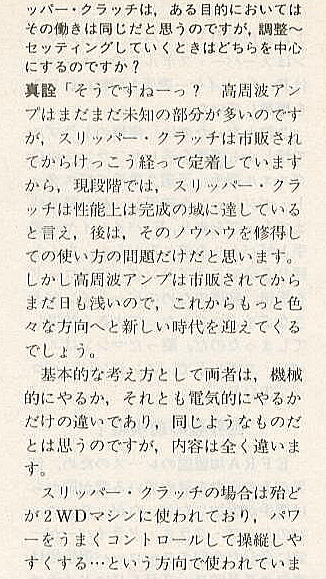 ッパー・クラッチは，ある目的においては
その働きは同じだと思うのですが，調整〜
セッティングしていくときはどちらを中心
にするのですか？
真詮「そうですねーっ？　高周波アン
プはまだまだ未知の部分が多いのです
が，スリッパー・クラッチは市販され
てからけっこう経って定着しています
から，現段階では，スリッパー・クラ
ッチは性能上は完成の域に達している
と言え，後は，そのノウハウを修得し
ての使い方の問題だけだと思います。
しかし高周波アンプは市販されてから
まだ日も浅いので，これからもっと色
々な方向へと新しい時代を迎えてくる
でしょう。
　基本的な考え方として両者は，機械
的にやるか，それとも電気的にやるか
だけの違いであり，同じようなものだ
とは思うのですが，内容は全く違いま
す。
　スリッパー・クラッチの場合は殆ど
が2WDマシンに使われており，パワ
ーをうまくコントロールして操縦しや
すくする…という方向で使われていま